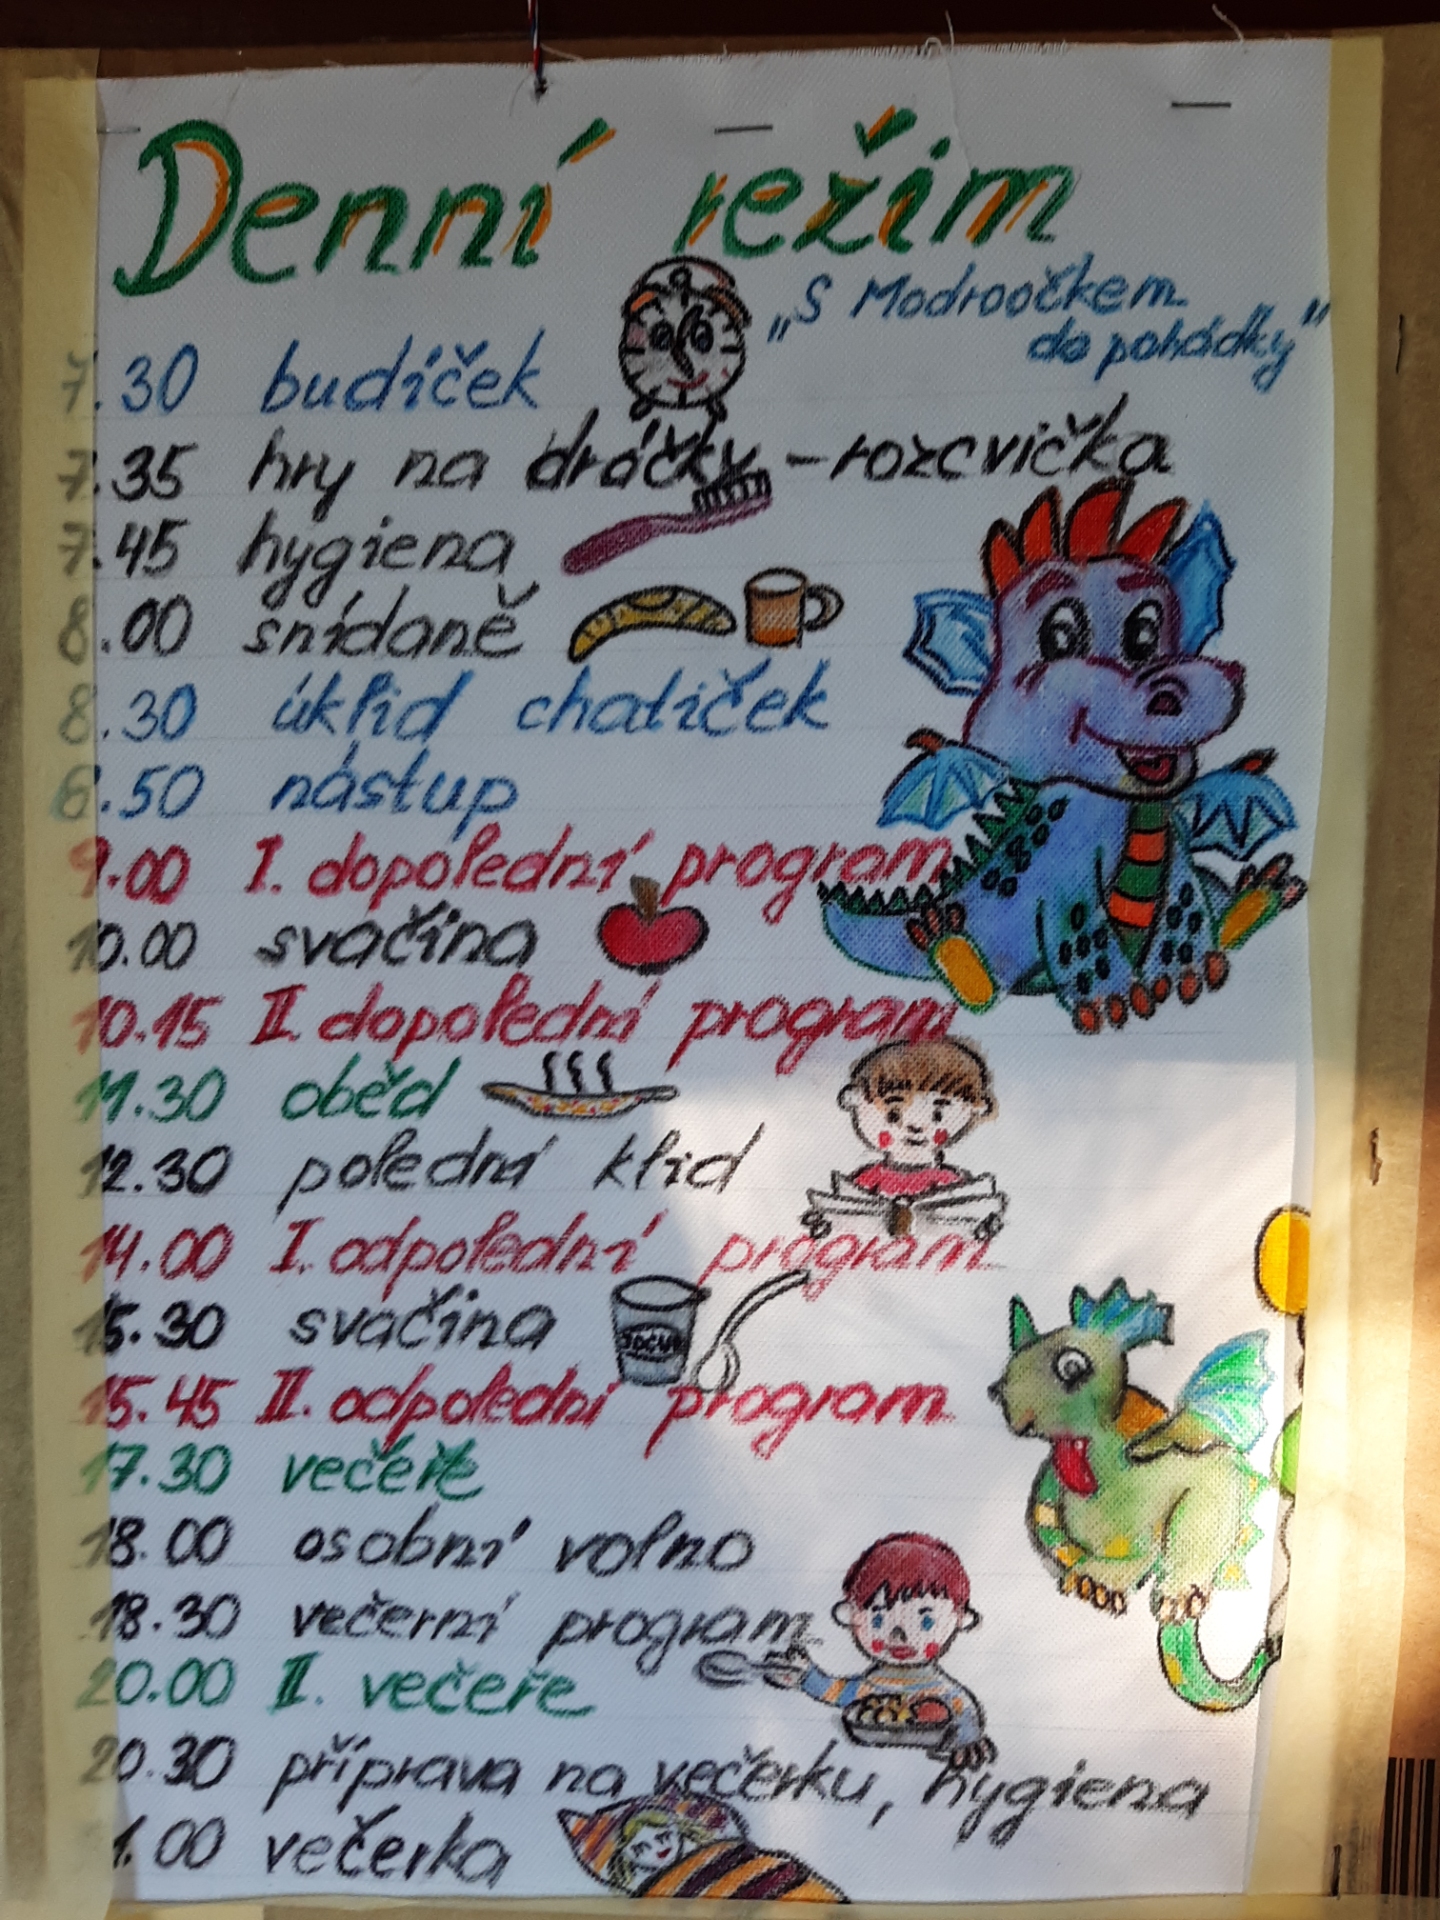 Denní režim
„S Modroočkem
do pohádky"
7.30 budíček
7.35 hry na dráčky - rozcvička
7.45 hygiena
8.00 snídaně
8.30 úklid chatiček
8.50 nástup
9.00 I. dopolední program
10.00 svačina
10.15 II. dopolední program
11.30 oběd
12.30 polední klid
14.00 I. odpolední program
15.30 svačina
15.45 II. odpolední program
17.30 večeře
18.00 osobní volno
18.30 večerní program
20.00 II. večeře
20.30 příprava na večerku, hygiena
1.00 večerka